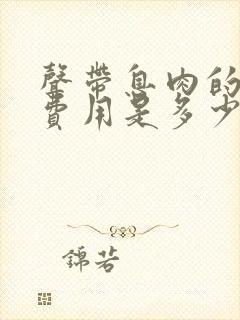 聲帶息肉的
費用是多少
錦若